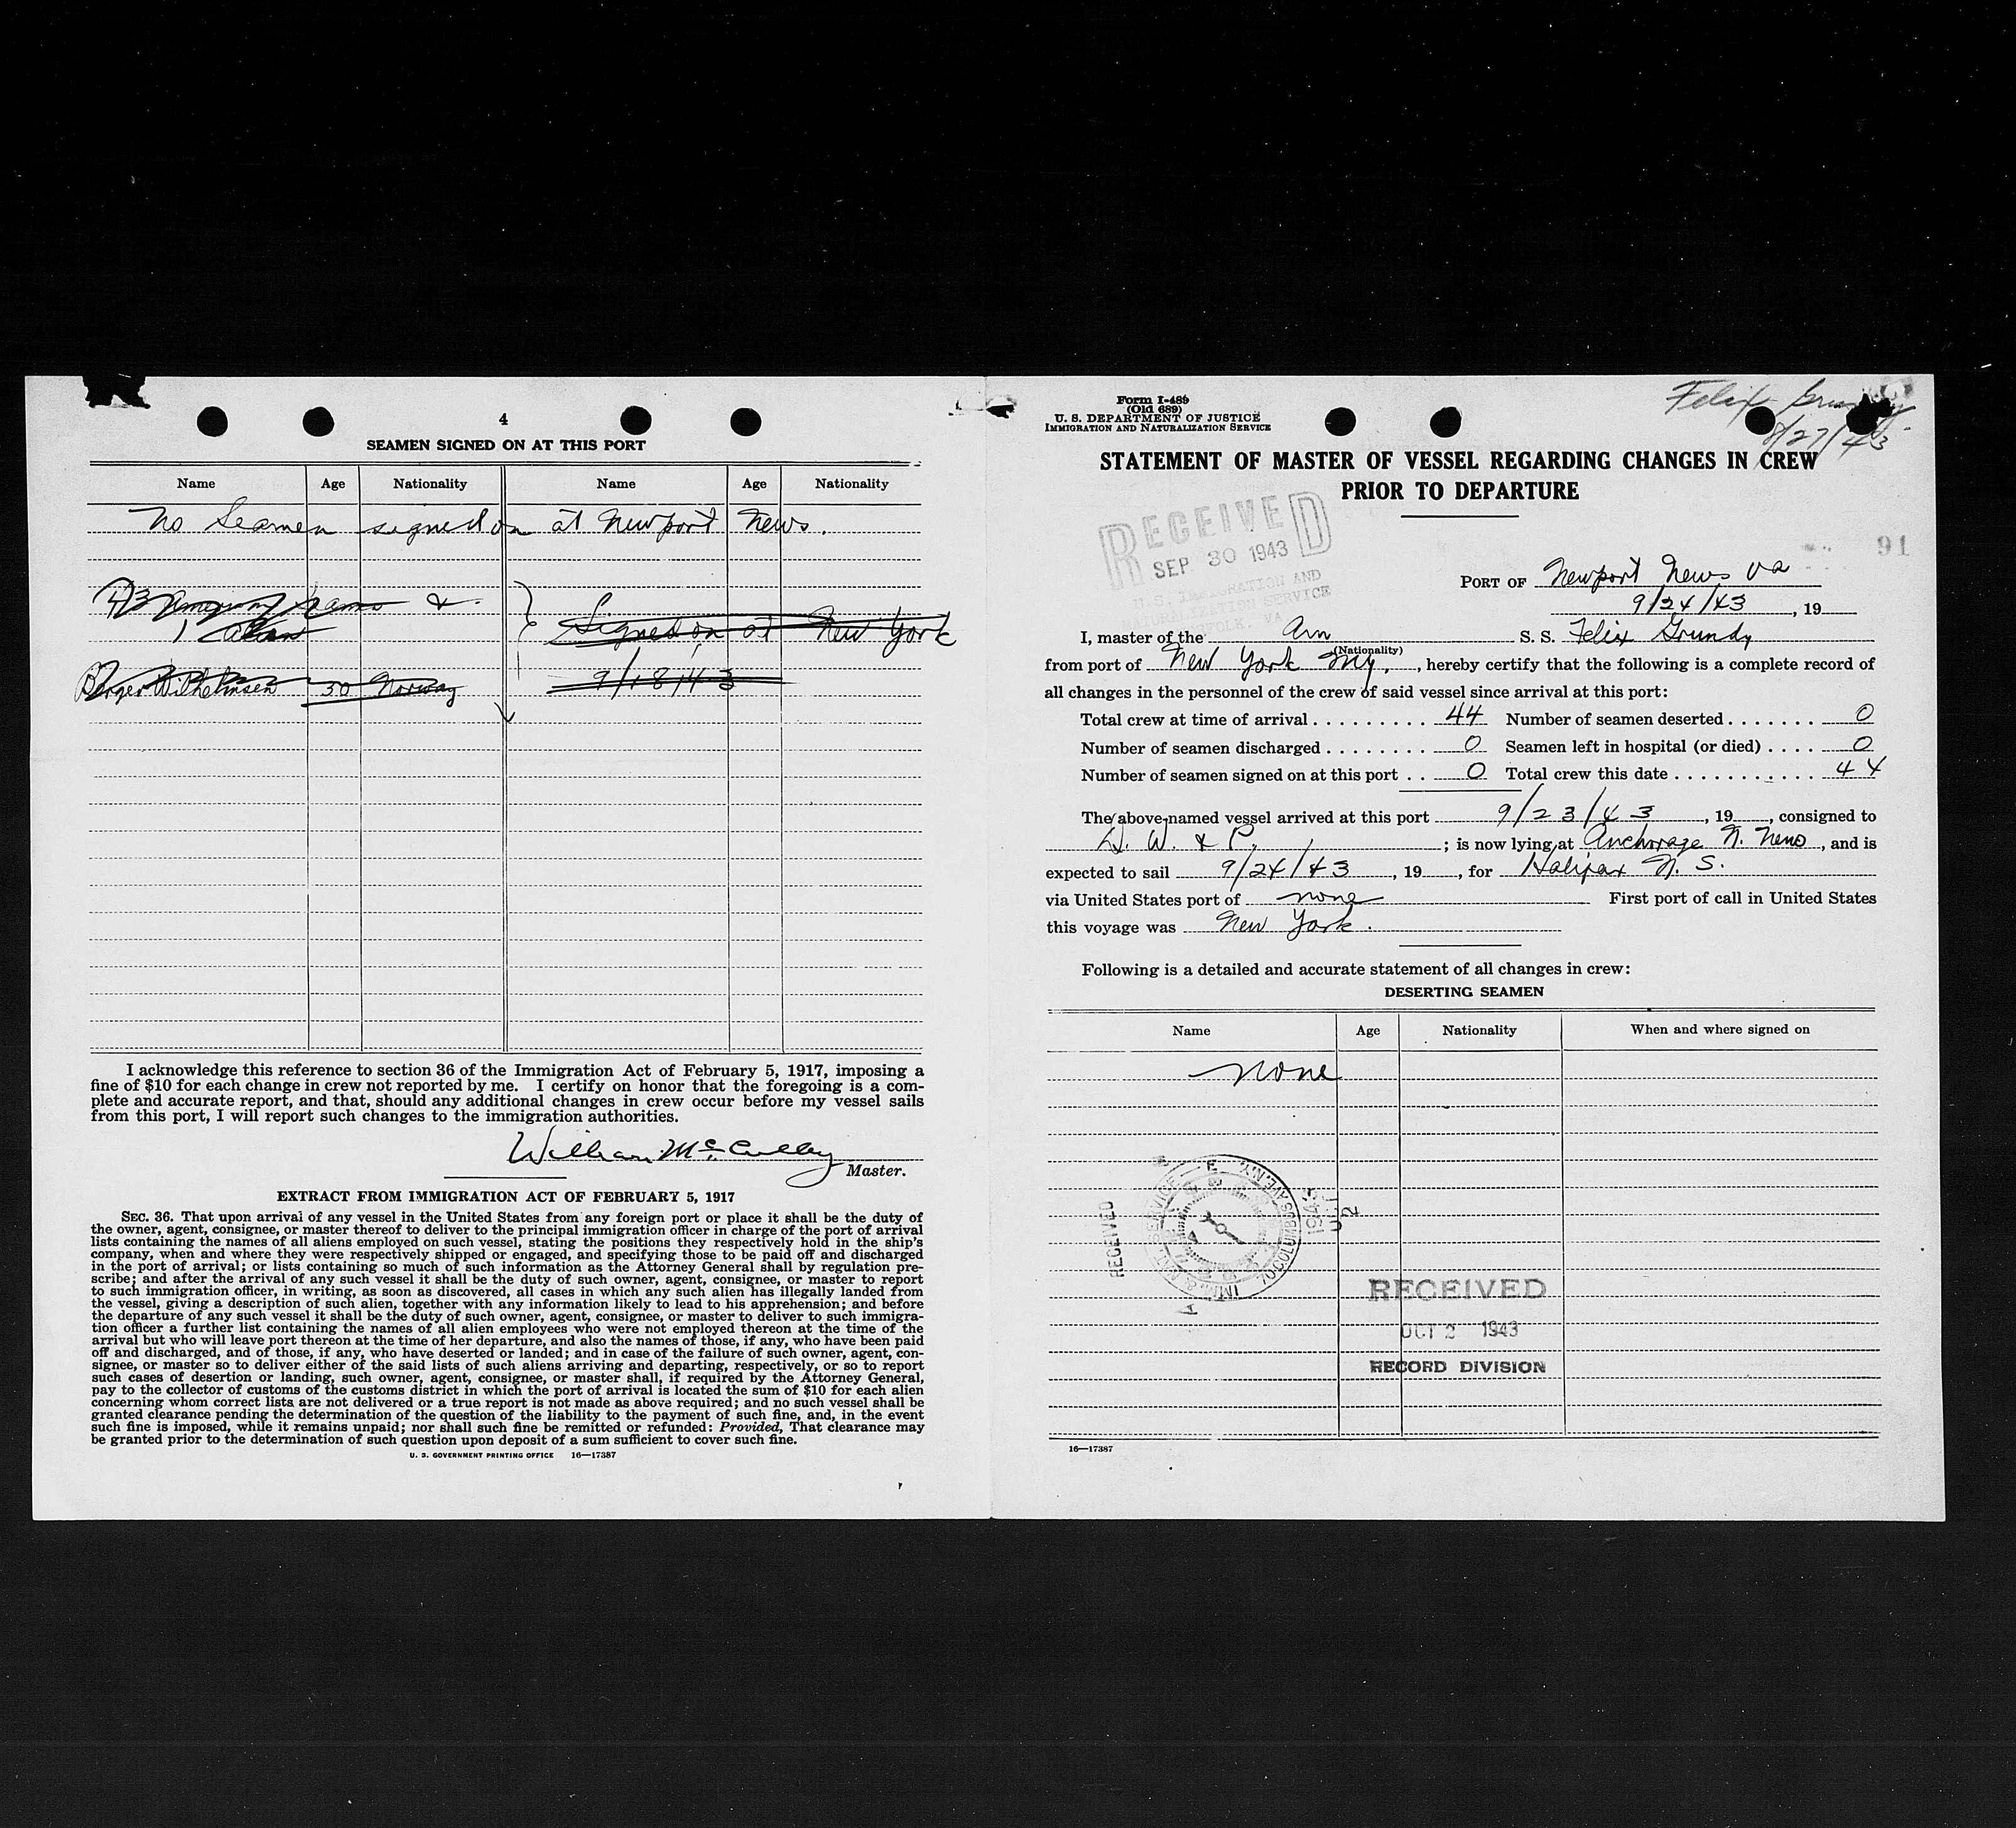 4
SEAMEN SIGNED ON AT THIS PORT
Name Age Nationality Name Age Nationality
No Seamen signed on at Newport News.
43 American seamen &
1 Alien
Signed on at New York
Berger Wilhelmsen 30 Norway 9/18/43
I acknowledge this reference to section 36 of the Immigration Act of February 5, 1917, imposing a
fine of $10 for each change in crew not reported by me. I certify on honor that the foregoing is a com-
plete and accurate report, and that, should any additional changes in crew occur before my vessel sails
from this port, I will report such changes to the immigration authorities.
William McCulley
Master.
EXTRACT FROM IMMIGRATION ACT OF FEBRUARY 5, 1917
SEC. 36. That upon arrival of any vessel in the United States from any foreign port or place it shall be the duty of
the owner, agent, consignee, or master thereof to deliver to the principal immigration officer in charge of the port of arrival
lists containing the names of all aliens employed on such vessel, stating the positions they respectively hold in the ship's
company, when and where they were respectively shipped or engaged, and specifying those to be paid off and discharged
in the port of arrival; or lists containing so much of such information as the Attorney General shall by regulation pre-
scribe; and after the arrival of any such vessel it shall be the duty of such owner, agent, consignee, or master to report
to such immigration officer, in writing, as soon as discovered, all cases in which any such alien has illegally landed from
the vessel, giving a description of such alien, together with any information likely to lead to his apprehension; and before
the departure of any such vessel it shall be the duty of such owner, agent, consignee, or master to deliver to such immigra-
tion officer a further list containing the names of all alien employees who were not employed thereon at the time of the
arrival but who will leave port thereon at the time of her departure, and also the names of those, if any, who have been paid
off and discharged, and of those, if any, who have deserted or landed; and in case of the failure of such owner, agent, con-
signee, or master so to deliver either of the said lists of such aliens arriving and departing, respectively, or so to report
such cases of desertion or landing, such owner, agent, consignee, or master shall, if required by the Attorney General,
pay to the collector of customs of the customs district in which the port of arrival is located the sum of $10 for each alien
concerning whom correct lists are not delivered or a true report is not made as above required; and no such vessel shall be
granted clearance pending the determination of the question of the liability to the payment of such fine, and, in the event
such fine is imposed, while it remains unpaid; nor shall such fine be remitted or refunded: Provided, That clearance may
be granted prior to the determination of such question upon deposit of a sum sufficient to cover such fine.
U. S. GOVERNMENT PRINTING OFFICE 16—17387
Form I-489
(Old 689)
U. S. DEPARTMENT OF JUSTICE
IMMIGRATION AND NATURALIZATION SERVICE
Felix Grundy
9/27/43
STATEMENT OF MASTER OF VESSEL REGARDING CHANGES IN CREW
PRIOR TO DEPARTURE
RECEIVED
SEP 30 1943
U.S. IMMIGRATION AND
NATURALIZATION SERVICE
NORFOLK, VA.
91
PORT OF Newport News Va
9/24/43, 19
I, master of the Am S. S. Felix Grundy
(Nationality)
from port of New York NY., hereby certify that the following is a complete record of
all changes in the personnel of the crew of said vessel since arrival at this port:
Total crew at time of arrival 44 Number of seamen deserted 0
Number of seamen discharged 0 Seamen left in hospital (or died) 0
Number of seamen signed on at this port 0 Total crew this date 44
The above-named vessel arrived at this port 9/23/43, 19, consigned to
D. W. & P.; is now lying at Anchorage N. News, and is
expected to sail 9/24/43, 19, for Halifax N. S.
via United States port of none First port of call in United States
this voyage was New York.
Following is a detailed and accurate statement of all changes in crew:
DESERTING SEAMEN
Name Age Nationality When and where signed on
None
RECEIVED
RECEIVED
OCT 2 1943
RECORD DIVISION
16—17387